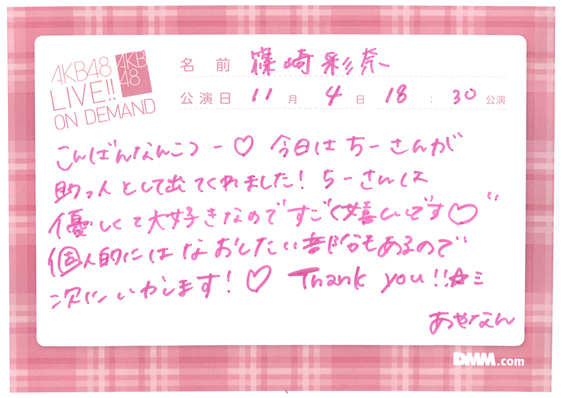 AKB48
LIVE!!
ON DEMAND
AKB
48
名前 篠崎彩奈
公演日 11月4日 18:30公演
こんばんなんこつー♡ 今日はちーさんが
助っ人として出てくれました! ちーさんは
優しくて大好きなのですごく嬉しいです♡
個人的にはなおしたい部分もあるので
次にいかします!♡ Thank you!!☆ミ
あやなん
DMM.com